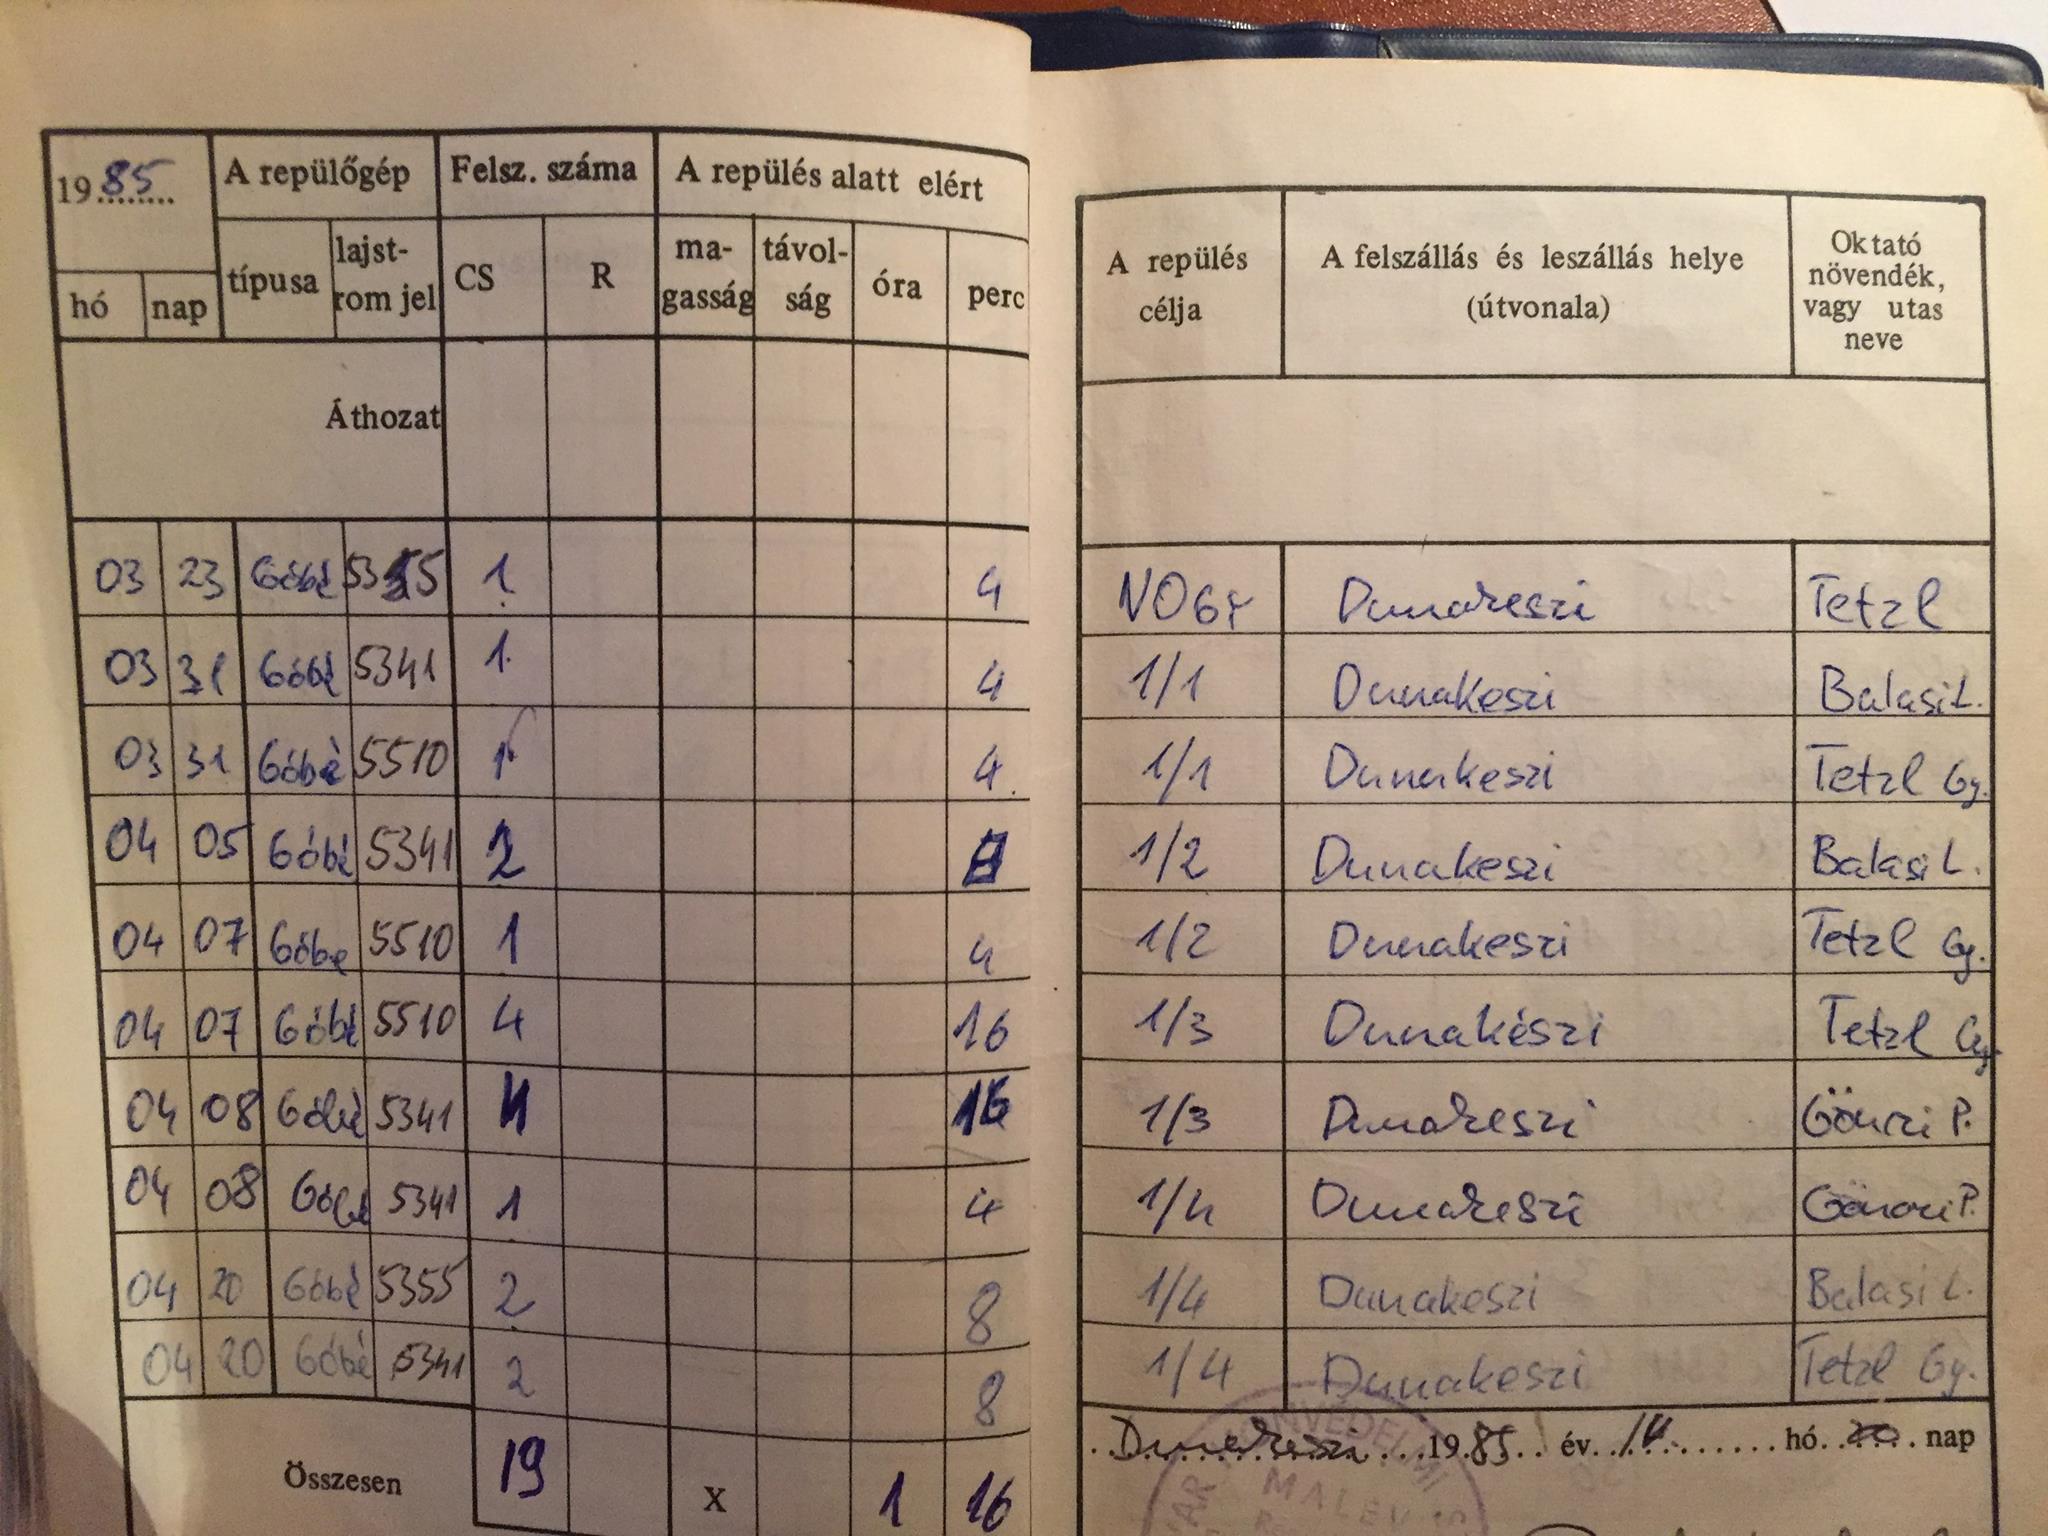 19 85 A repülőgép Felsz. száma A repülés alatt elért
hó nap típusa lajst-rom jel CS R ma-gasság távol-ság óra perc
A repülés célja A felszállás és leszállás helye (útvonala) Oktató növendék, vagy utas neve
Áthozat
03 23 Góbé 5355 1 4 Dunakeszi Tetzl
03 31 Góbé 5341 1 4 1/1 Dunakeszi Balasi L.
03 31 Góbé 5510 1 4 1/1 Dunakeszi Tetzl Gy.
04 05 Góbé 5341 2 8 1/2 Dunakeszi Balasi L.
04 07 Góbé 5510 1 4 1/2 Dunakeszi Tetzl Gy.
04 07 Góbé 5510 4 16 1/3 Dunakeszi Tetzl Gy.
04 08 Góbé 5341 4 16 1/3 Dunakeszi Gönczi P.
04 08 Góbé 5341 1 4 1/4 Dunakeszi Gönczi P.
04 20 Góbé 5355 2 8 1/4 Dunakeszi Balasi L.
04 20 Góbé 5341 2 8 1/4 Dunakeszi Tetzl Gy.
Összesen 19 x 1 16
Dunakeszi 1985 év hó 20 nap
HONVÉDELMI
MALÉV